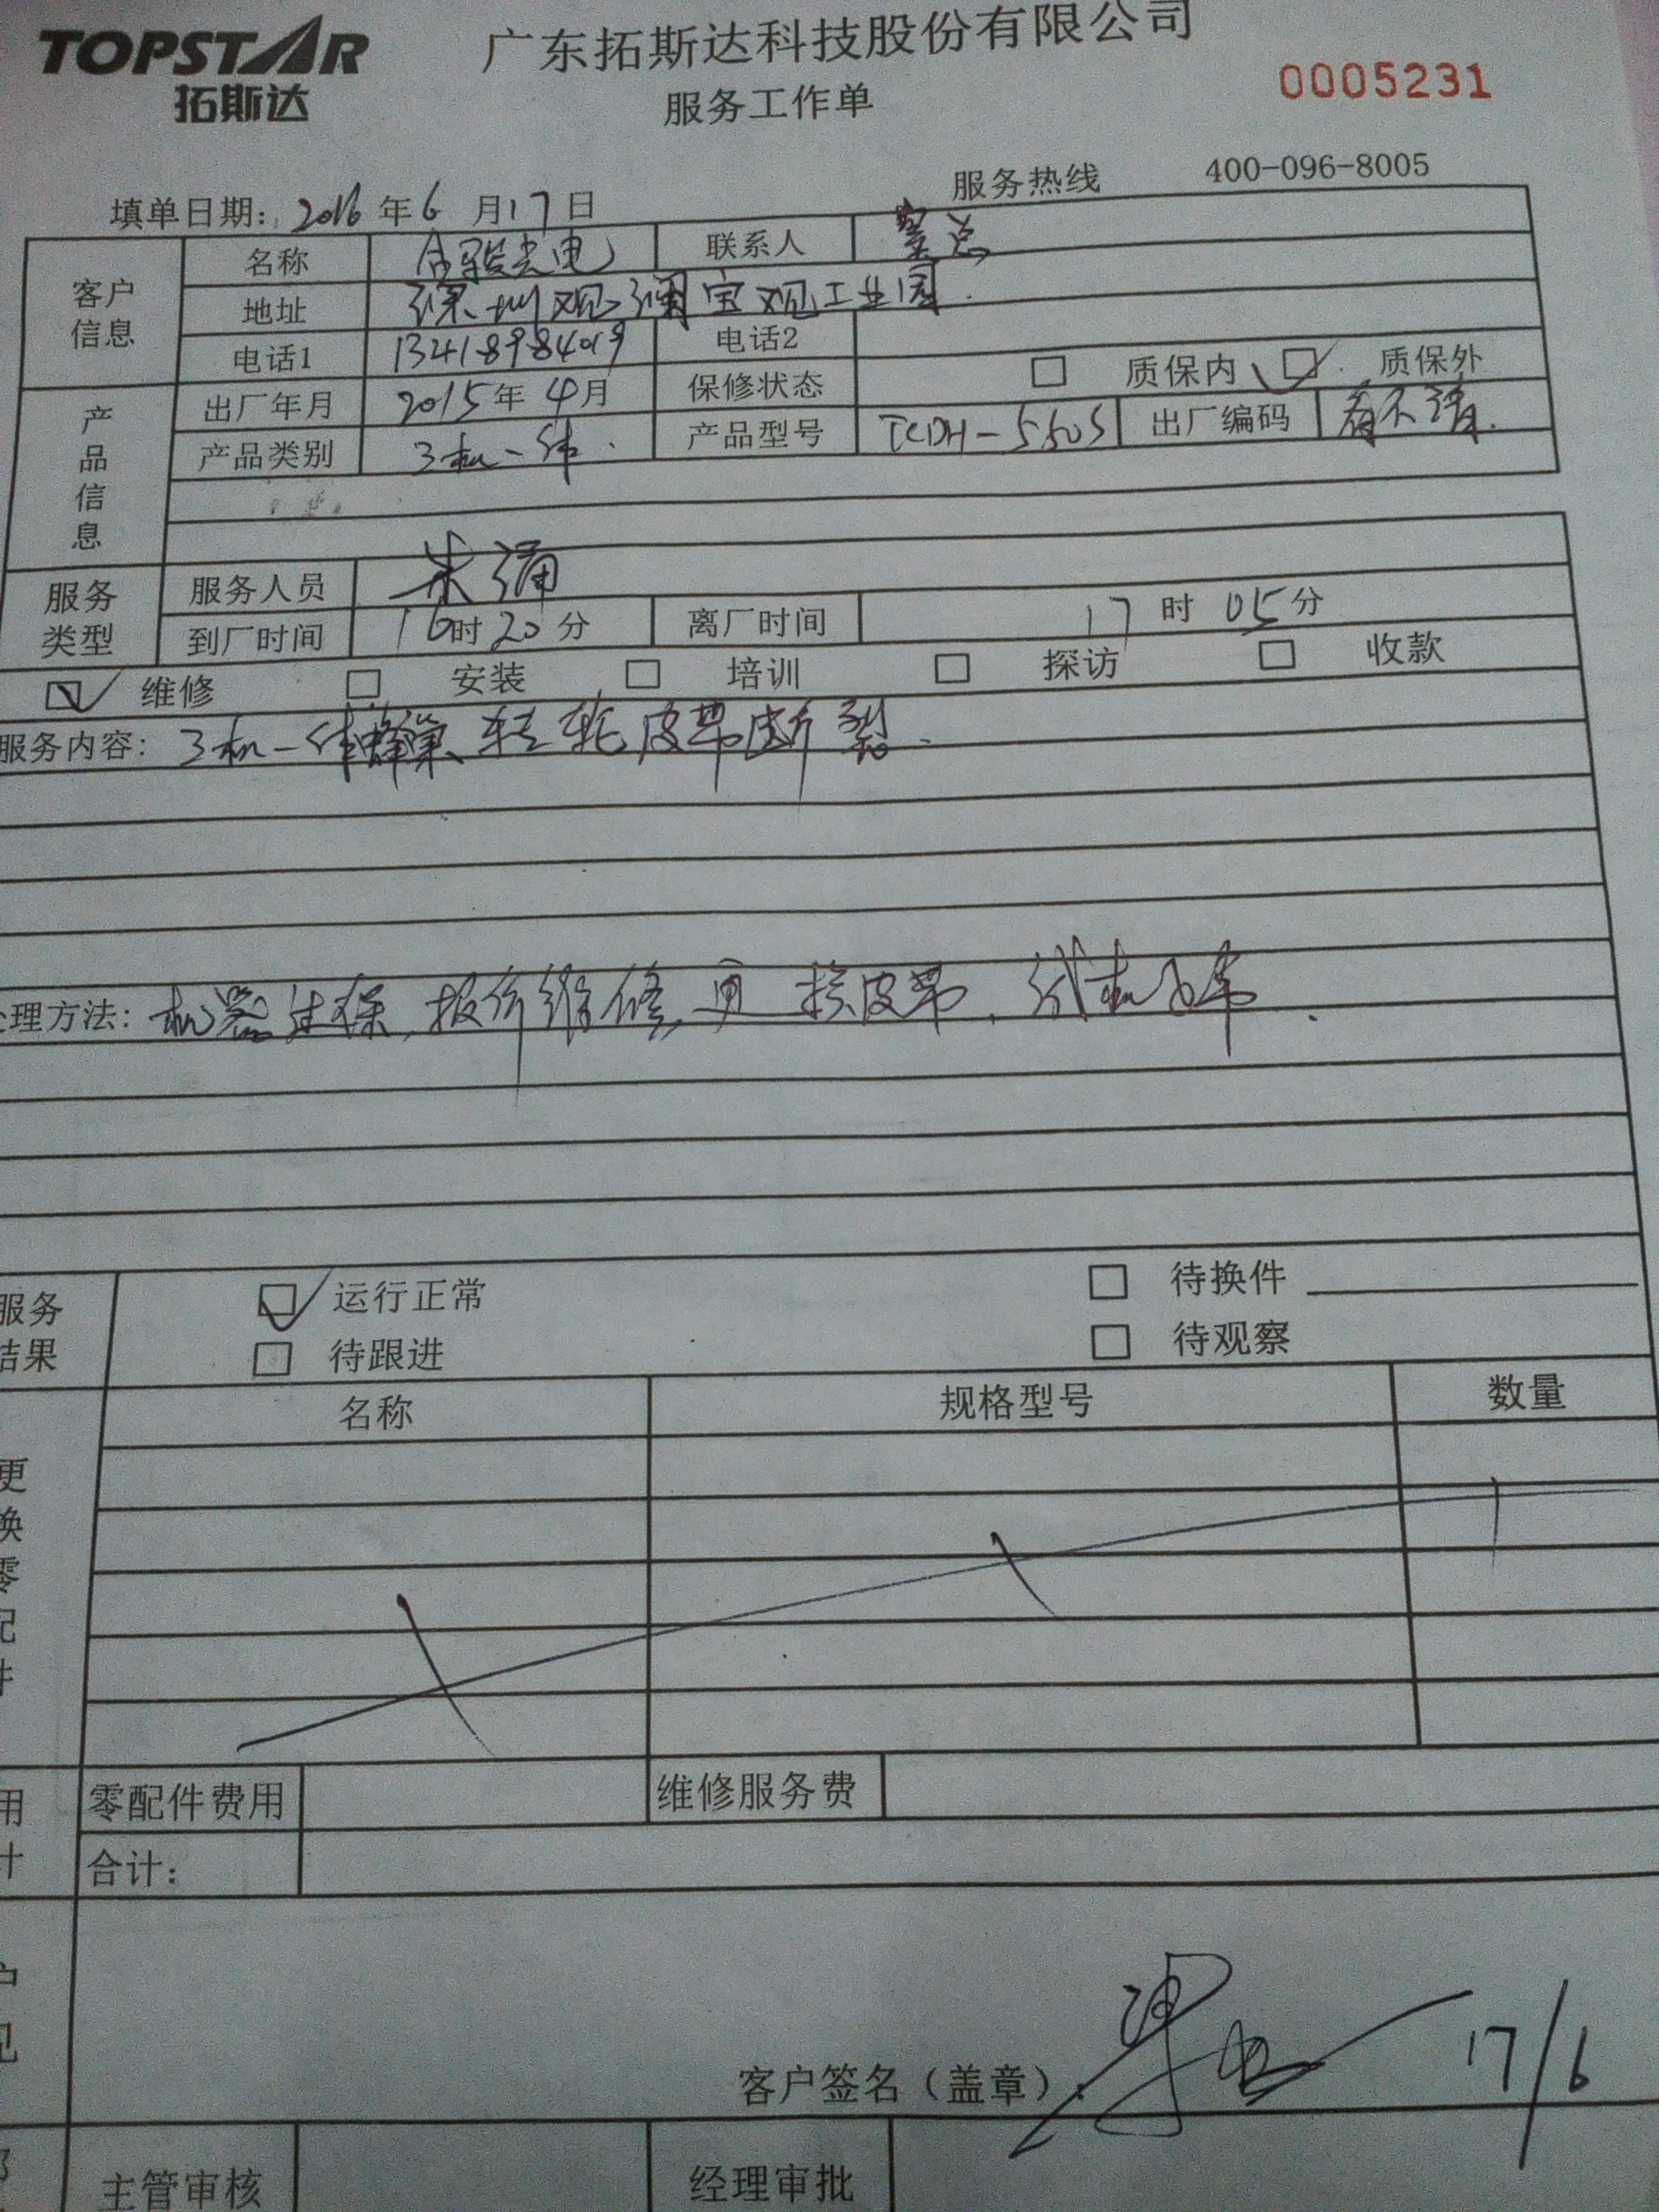 TOPSTAR
拓斯达
广东拓斯达科技股份有限公司
服务工作单
0005231
服务热线 400-096-8005
填单日期: 2016 年 6 月 17 日
客户信息
名称 合骏光电 联系人 总
地址 深圳观澜宝观工业园
电话1 13418984019 电话2
产品信息
出厂年月 2015 年 4 月 保修状态 □ 质保内 ☑ 质保外
产品类别 3机一体 产品型号 TCDH-550S 出厂编码 看不清
服务类型
服务人员 朱涌
到厂时间 16 时 20 分 离厂时间 17 时 05 分
☑ 维修 □ 安装 □ 培训 □ 探访 □ 收款
服务内容: 3机一体蜂巢转轮皮带断裂
处理方法: 机器过保,报价维修,更换皮带
服务结果
☑ 运行正常 □ 待换件
□ 待跟进 □ 待观察
更换零配件
名称 规格型号 数量
用 零配件费用 维修服务费
计 合计:
户
见
客户签名(盖章): 17/6
主管审核 经理审批